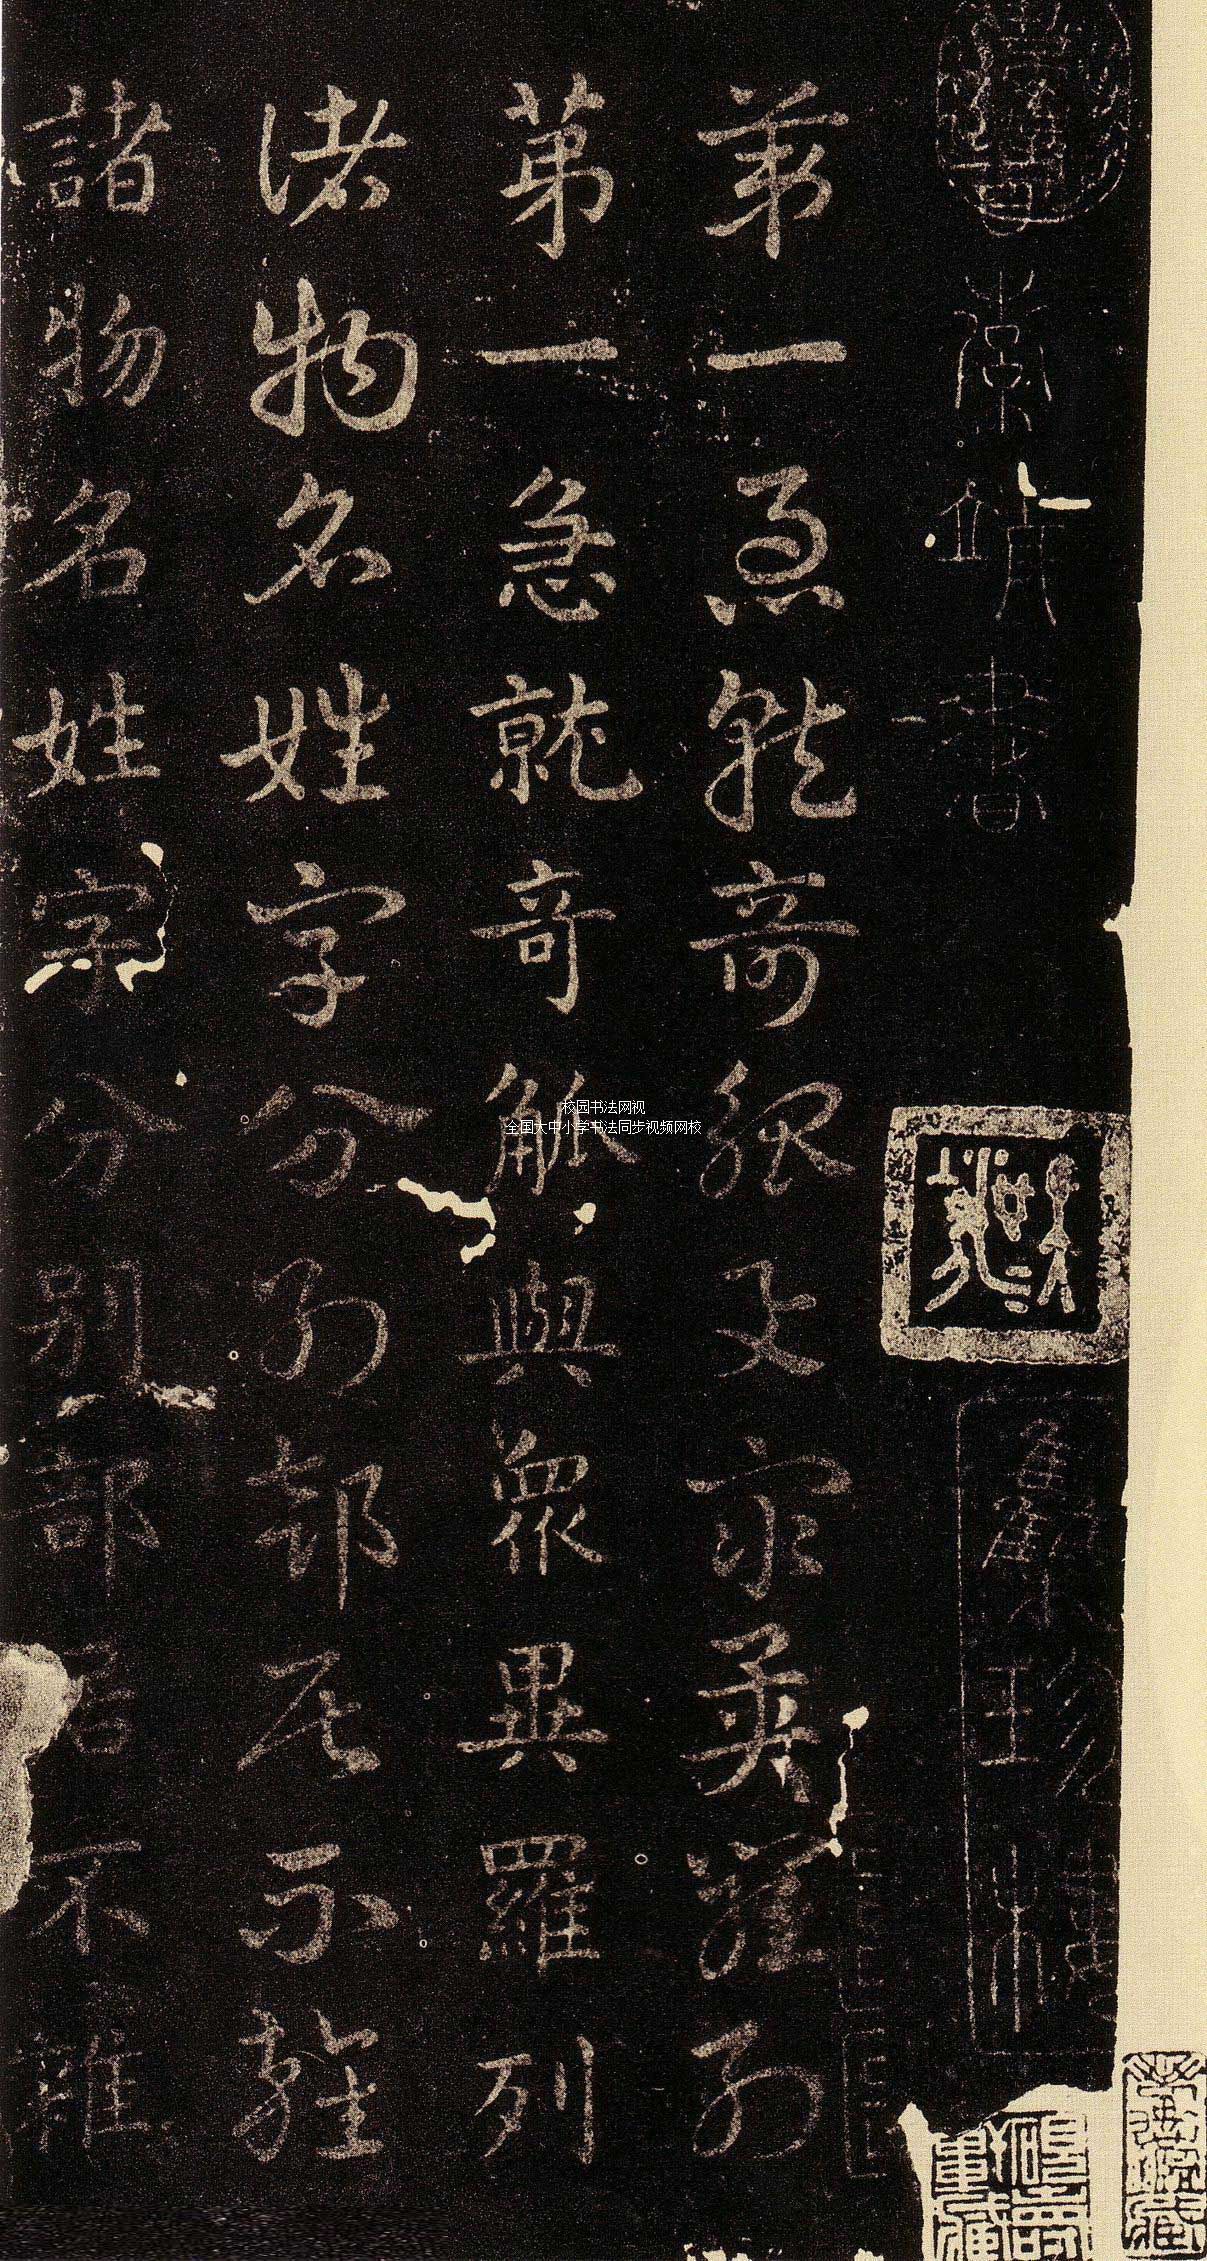 索靖書
第一急就奇觚與眾異羅列
第一急就奇觚與眾異羅列
諸物名姓字分別部居不雜
諸物名姓字分別部居不雜
校园书法网视
全国大中小学书法同步视频网校